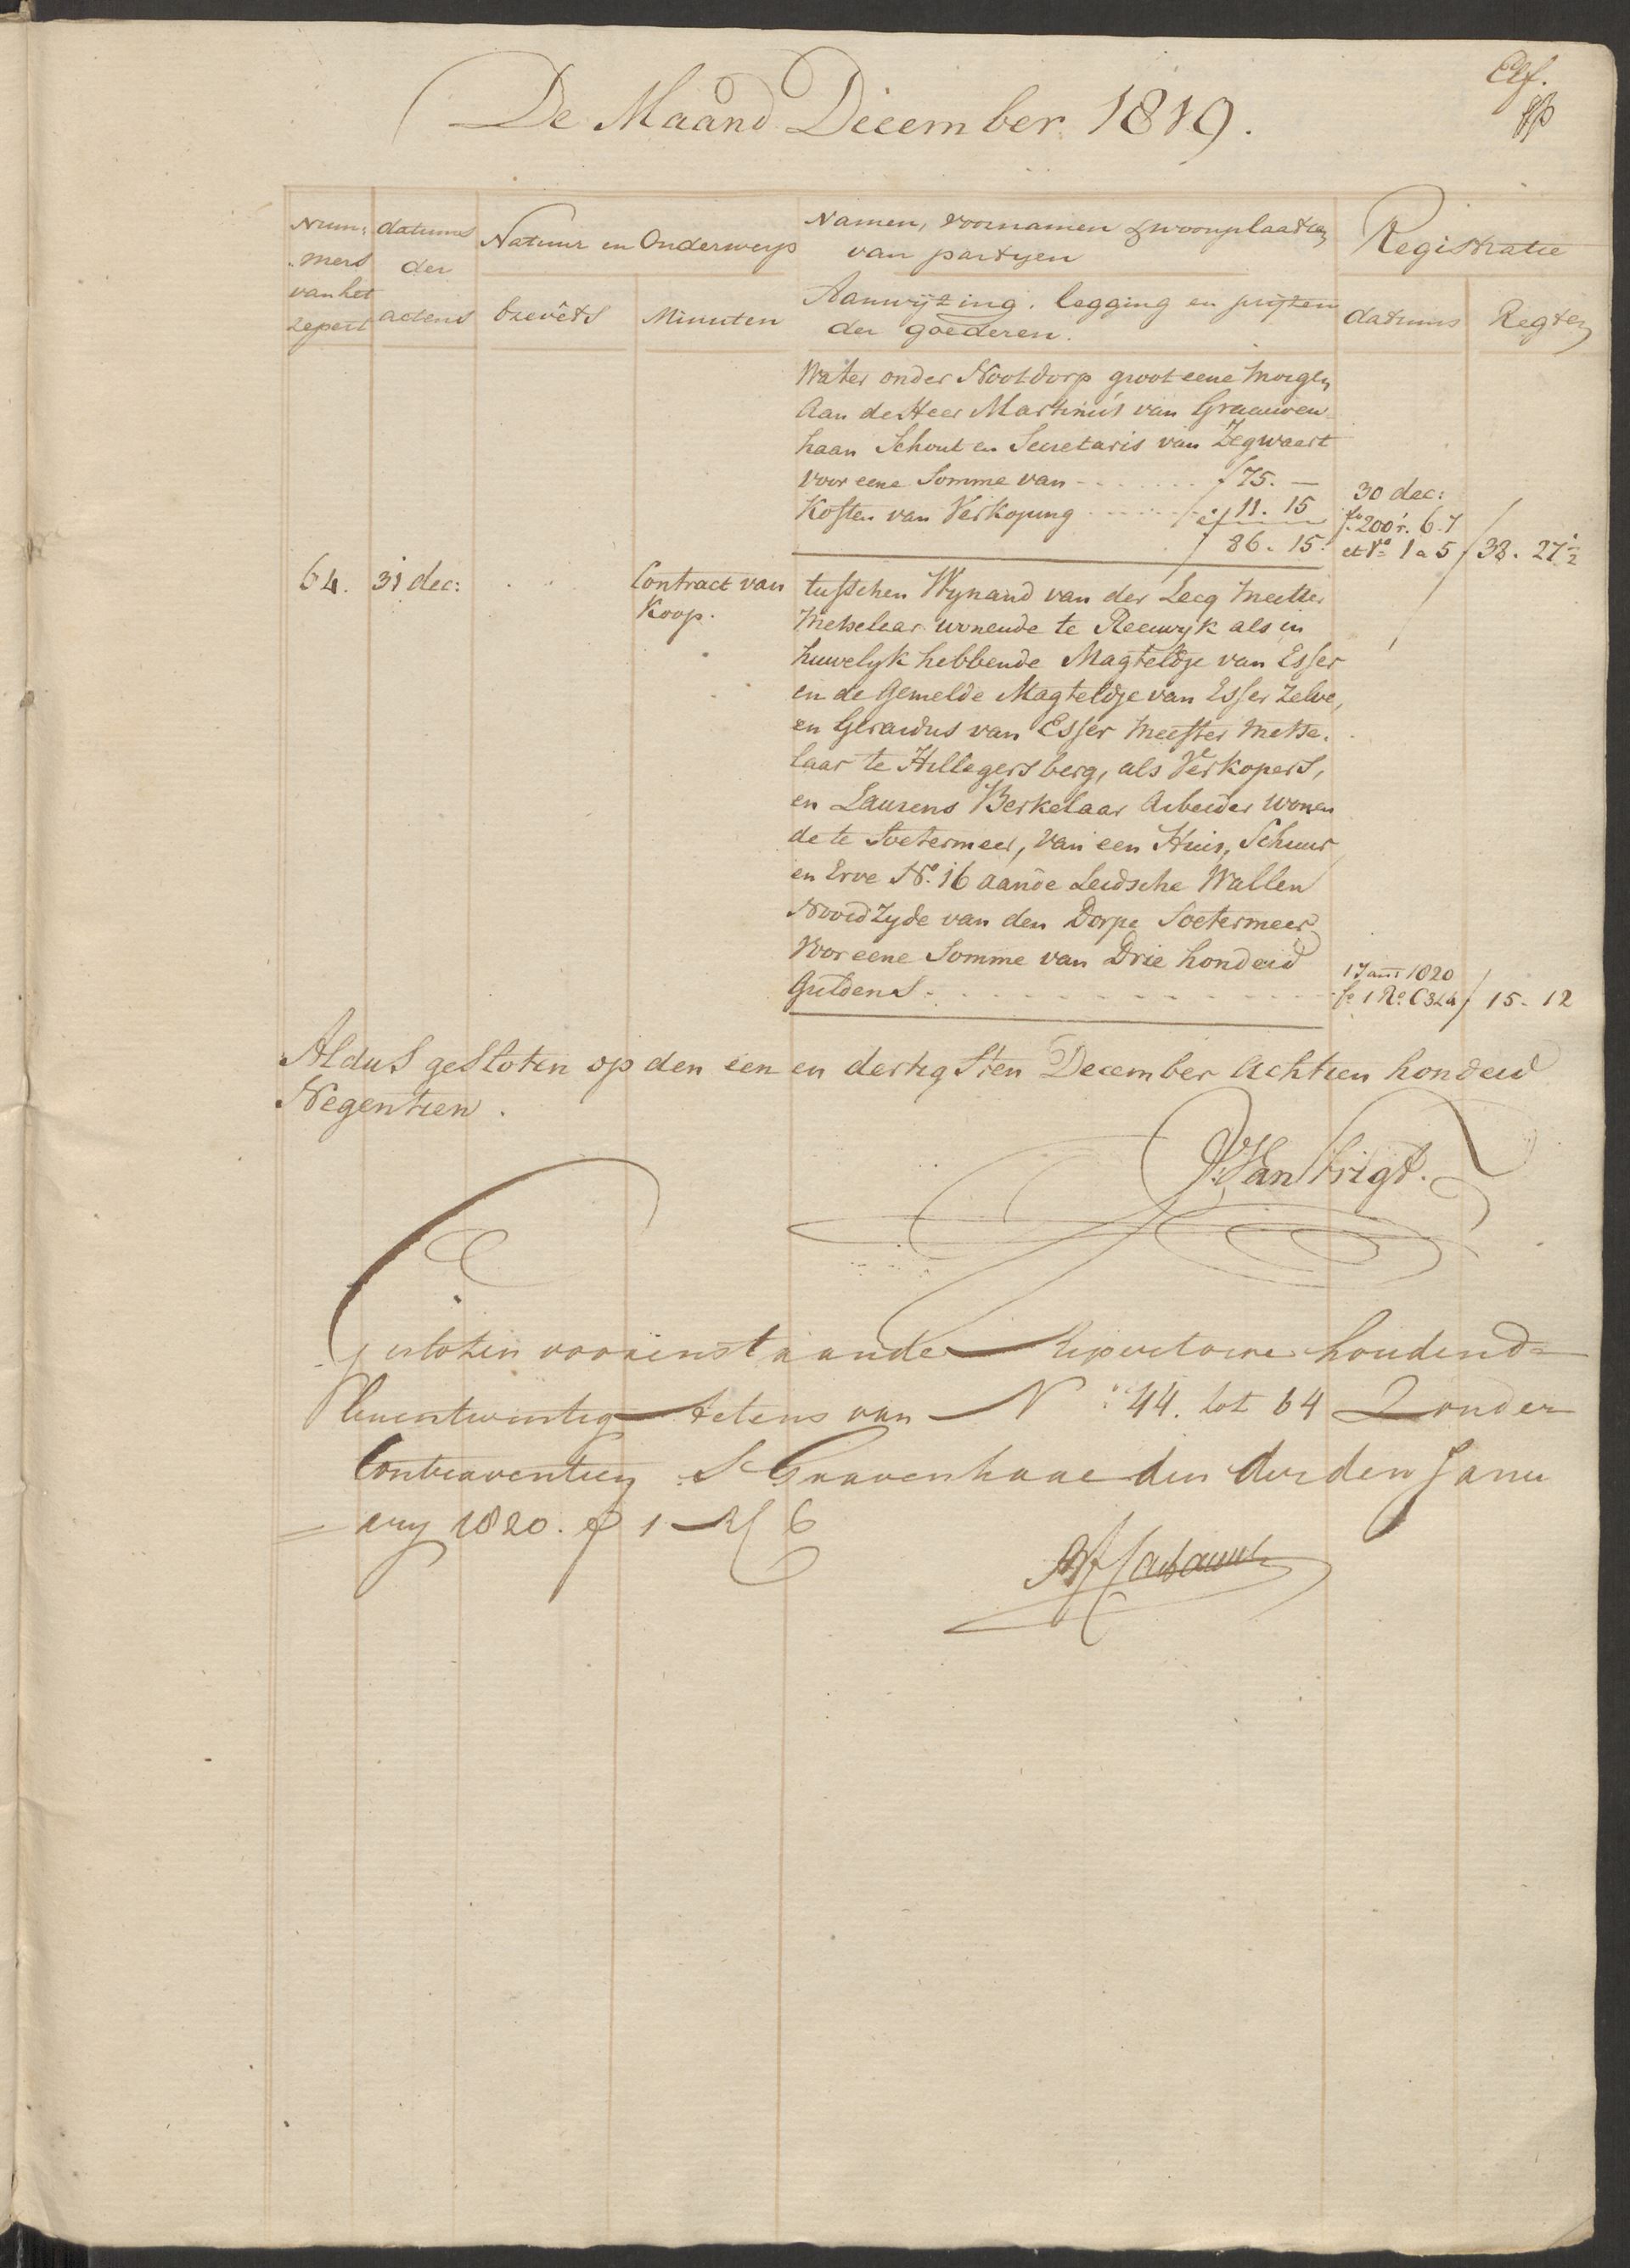 Elf.
De Maand December 1819.
Num: datums Natuur en Onderwerp Namen, voornamen & woonplaatsen Registratie
mers der van partyen
van het Aanwyzing, legging en pryzen
repert actens brevêts Minuten der goederen. datums Regten
Water onder Nootdorp groot eene morgen
Aan de Heer Martinus van Graauwen
haan Schout en Secretaris van Zegwaart
voor eene Somme van f 75. —
Kosten van Verkoping 11. 15 30 dec:
f 86. 15. fo 200 r. 6.7
et Vo 1 a 5 f 38. 27½
64. 31 dec: Contract van tusschen Wynand van der Leeg Meester
Koop. Metselaar wonende te Reeuwyk als in
huwelyk hebbende Magteldje van Esser
en de Gemelde Magteldje van Esser Zelve,
en Gerardus van Esser Meester Metse.
laar te Hillegersberg, als Verkopers,
en Laurens Berkelaar Arbeider wonen
de te Soetermeer, van een Huis, Schuur
en Erve No. 16 aan de Leidsche Wallen
Noord Zyde van den Dorpe Soetermeer
Voor eene Somme van Drie honderd
Guldens 1820
fo 1 Ro C 3 & 4 f 15. 12
Aldus gesloten op den een en dertigsten December Achtien honderd
Negentien.
Gesloten vorenstaande Repertoire houdend
eenentwintig Actens van No 44. tot 64 Zonder
Contraventien S Gravenhage den derden Janu
ary 1820. fo 1 R C